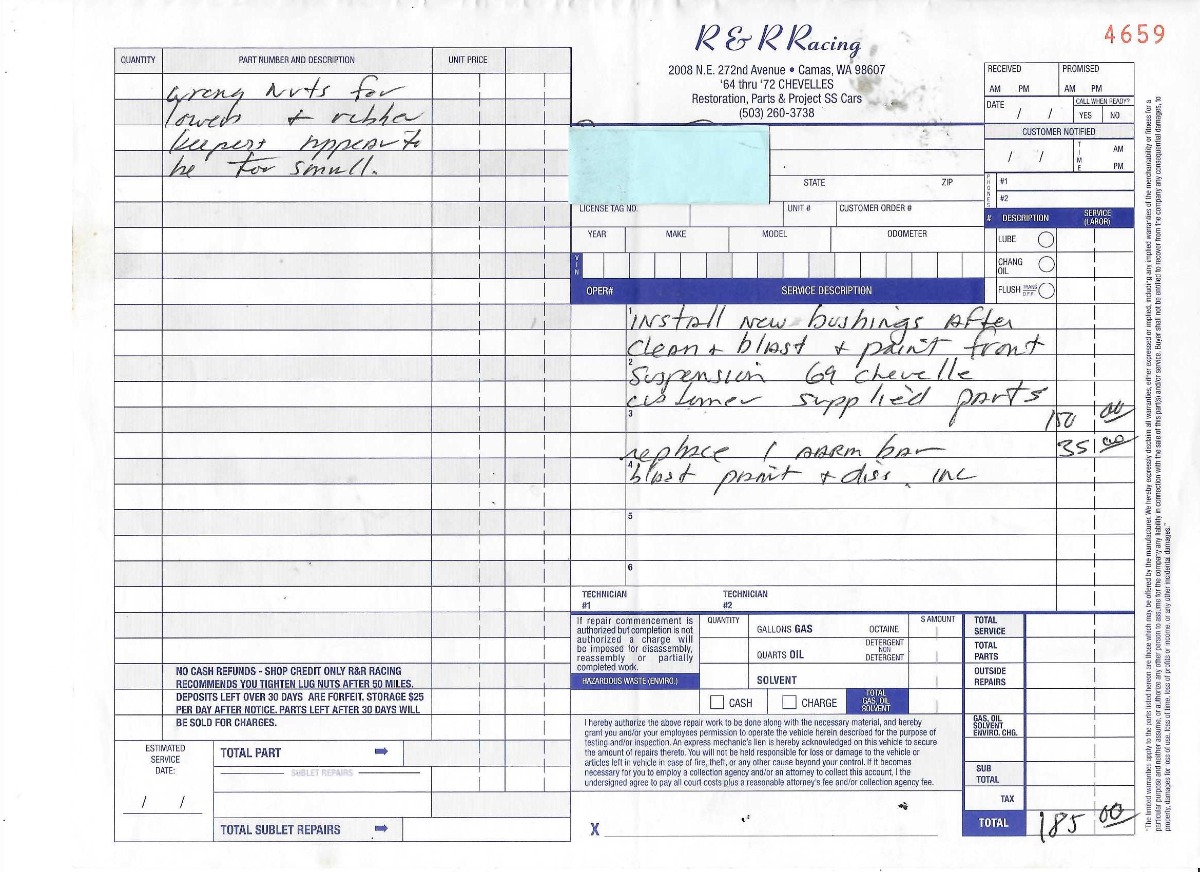 R & R Racing
4659
2008 N.E. 272nd Avenue • Camas, WA 98607
'64 thru '72 CHEVELLES
Restoration, Parts & Project SS Cars
(503) 260-3738
QUANTITY PART NUMBER AND DESCRIPTION UNIT PRICE
wrong Nuts for
lowers + rubber
keepers appear to
be too small.
RECEIVED PROMISED
AM PM AM PM
DATE / / CALL WHEN READY?
YES NO
CUSTOMER NOTIFIED
/ / TIME AM
PM
PHONES #1
#2
STATE ZIP
LICENSE TAG NO. UNIT # CUSTOMER ORDER #
YEAR MAKE MODEL ODOMETER
VIN
# DESCRIPTION SERVICE (LABOR)
LUBE
CHANG OIL
FLUSH TRANS DIFF.
OPER# SERVICE DESCRIPTION
1
INStall New bushings After
clean + blast + paint front
2
Suspension 69 chevelle
customer supplied parts
3
150 00
replace 1 AARM bar 35 00
4
blast paint + diss. INC
5
6
TECHNICIAN #1 TECHNICIAN #2
If repair commencement is
authorized but completion is not
authorized a charge will
be imposed for disassembly,
reassembly or partially
completed work.
HAZARDOUS WASTE (ENVIRO.)
QUANTITY GALLONS GAS OCTAINE $ AMOUNT
QUARTS OIL DETERGENT NON DETERGENT
SOLVENT
CASH CHARGE TOTAL GAS, OIL SOLVENT
TOTAL SERVICE
TOTAL PARTS
OUTSIDE REPAIRS
GAS, OIL SOLVENT ENVIRO. CHG.
SUB TOTAL
TAX
TOTAL 185 00
I hereby authorize the above repair work to be done along with the necessary material, and hereby
grant you and/or your employees permission to operate the vehicle herein described for the purpose of
testing and/or inspection. An express mechanic's lien is hereby acknowledged on this vehicle to secure
the amount of repairs thereto. You will not be held responsible for loss or damage to the vehicle or
articles left in vehicle in case of fire, theft, or any other cause beyond your control. If it becomes
necessary for you to employ a collection agency and/or an attorney to collect this account, I the
undersigned agree to pay all court costs plus a reasonable attorney's fee and/or collection agency fee.
X
NO CASH REFUNDS - SHOP CREDIT ONLY R&R RACING
RECOMMENDS YOU TIGHTEN LUG NUTS AFTER 50 MILES.
DEPOSITS LEFT OVER 30 DAYS ARE FORFEIT. STORAGE $25
PER DAY AFTER NOTICE. PARTS LEFT AFTER 30 DAYS WILL
BE SOLD FOR CHARGES.
ESTIMATED SERVICE DATE:
/ /
TOTAL PART
SUBLET REPAIRS
TOTAL SUBLET REPAIRS
"The limited warranties apply to the parts listed hereon are those which may be offered by the manufacturer. We hereby expressly disclaim all warranties, either expressed or implied, including any implied warranties of the merchantability or fitness for a
particular purpose and neither assume, or authorize any other person to assume for the company any liability in connection with the sale of this part(s) and/or service. Buyer shall not be entitled to recover from the company any consequential damages, to
property, damages for loss of use, loss of time, loss of profits or income, or any other incidental damages."